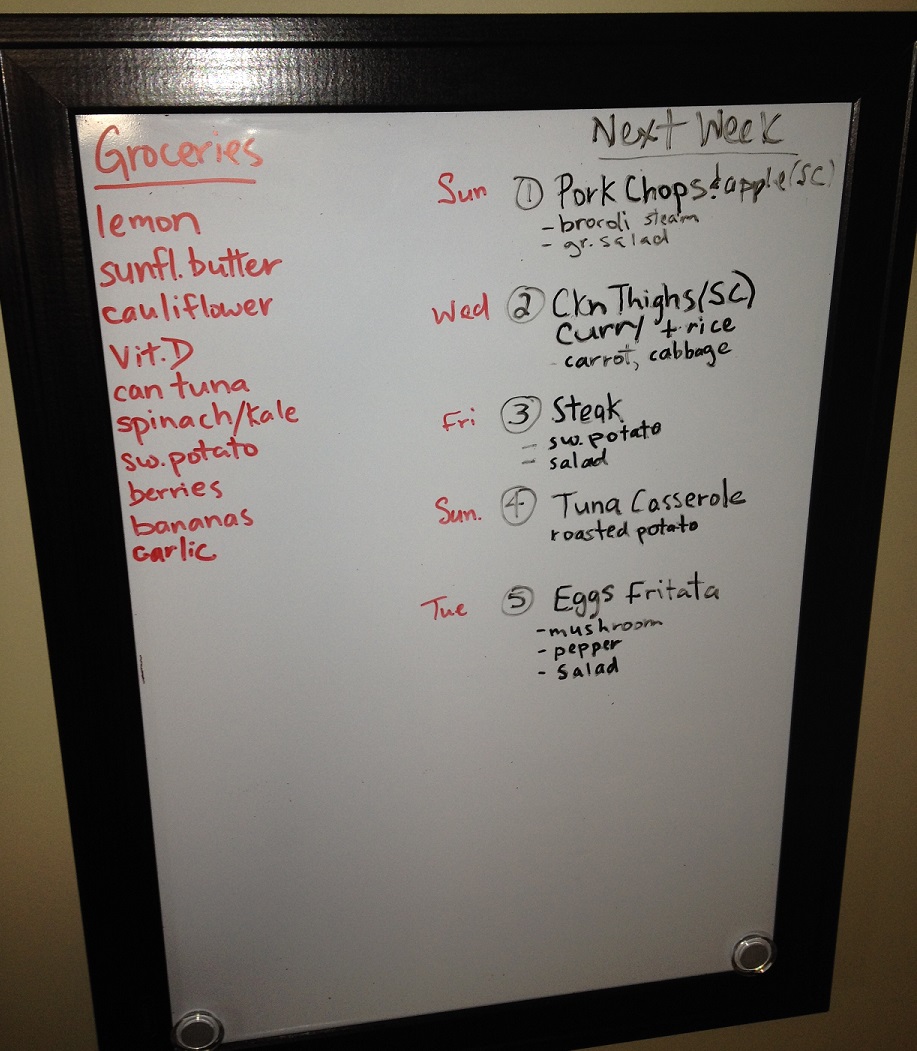 Groceries
lemon
sunfl. butter
cauliflower
Vit. D
can tuna
spinach/kale
sw. potato
berries
bananas
garlic
Next Week
Sun ① Pork Chops & apple (SC)
- brocoli steam
- gr. salad
Wed ② Ckn Thighs/(SC)
Curry + rice
- carrot, cabbage
Fri ③ Steak
- sw. potato
- salad
Sun. ④ Tuna Casserole
roasted potato
Tue ⑤ Eggs Fritata
- mushroom
- pepper
- salad